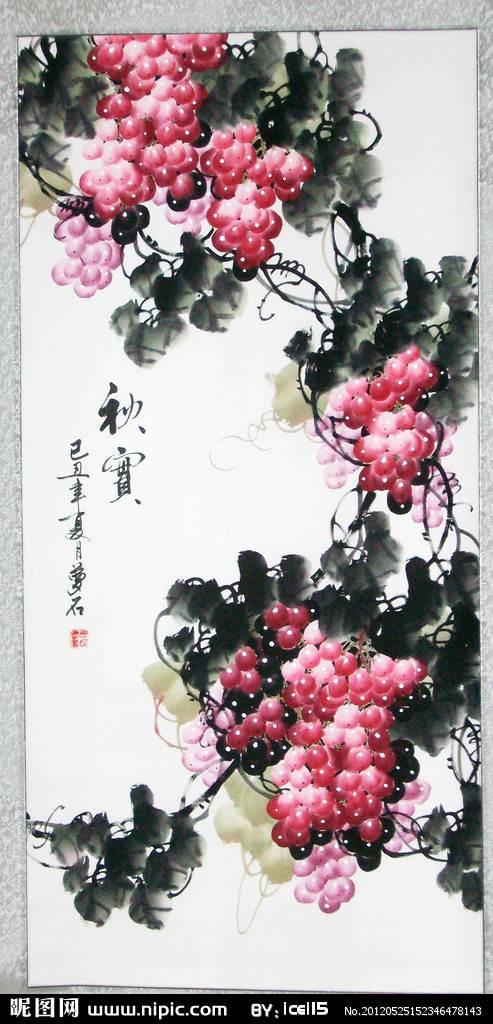 秋實
己丑年夏月夢石
昵图网 www.nipic.com BY: icell5 No.20120525152346478143